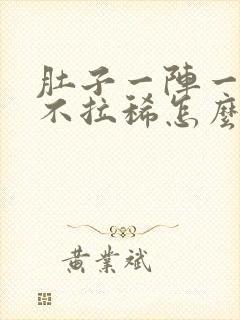 肚子一陣一
不拉稀怎麼
黃業斌